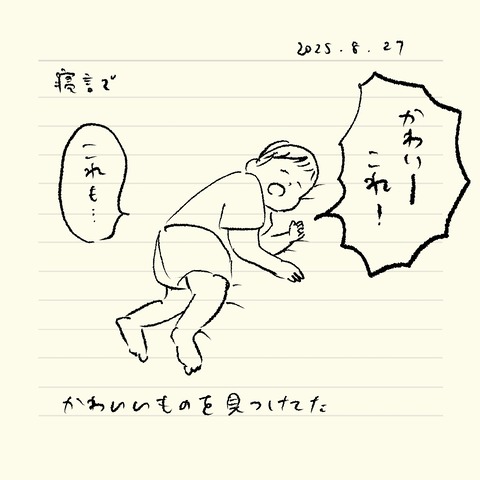 2025.8.27
寝言で
かわいー
これ!
これも…
かわいいものを見つけてた